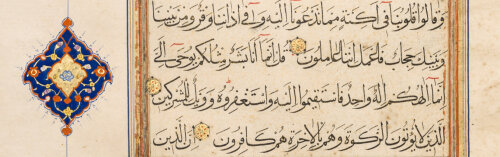 وَقَالُوا قُلُوبُنَا فِي أَكِنَّةٍ مِمَّا تَدْعُونَا إِلَيْهِ وَفِي آذَانِنَا وَقْرٌ وَمِنْ بَيْنِنَا
وَبَيْنِكَ حِجَابٌ فَاعْمَلْ إِنَّنَا عَامِلُونَ قُلْ إِنَّمَا أَنَا بَشَرٌ مِثْلُكُمْ يُوحَى إِلَيَّ
أَنَّمَا إِلَهُكُمْ إِلَهٌ وَاحِدٌ فَاسْتَقِيمُوا إِلَيْهِ وَاسْتَغْفِرُوهُ وَوَيْلٌ لِلْمُشْرِكِينَ
الَّذِينَ لَا يُؤْتُونَ الزَّكَوةَ وَهُمْ بِالْآخِرَةِ هُمْ كَافِرُونَ إِنَّ الَّذِينَ